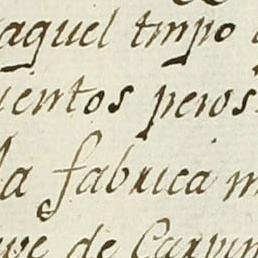 aquel tmpo
ientos pesos
la fabrica m
de Carpin